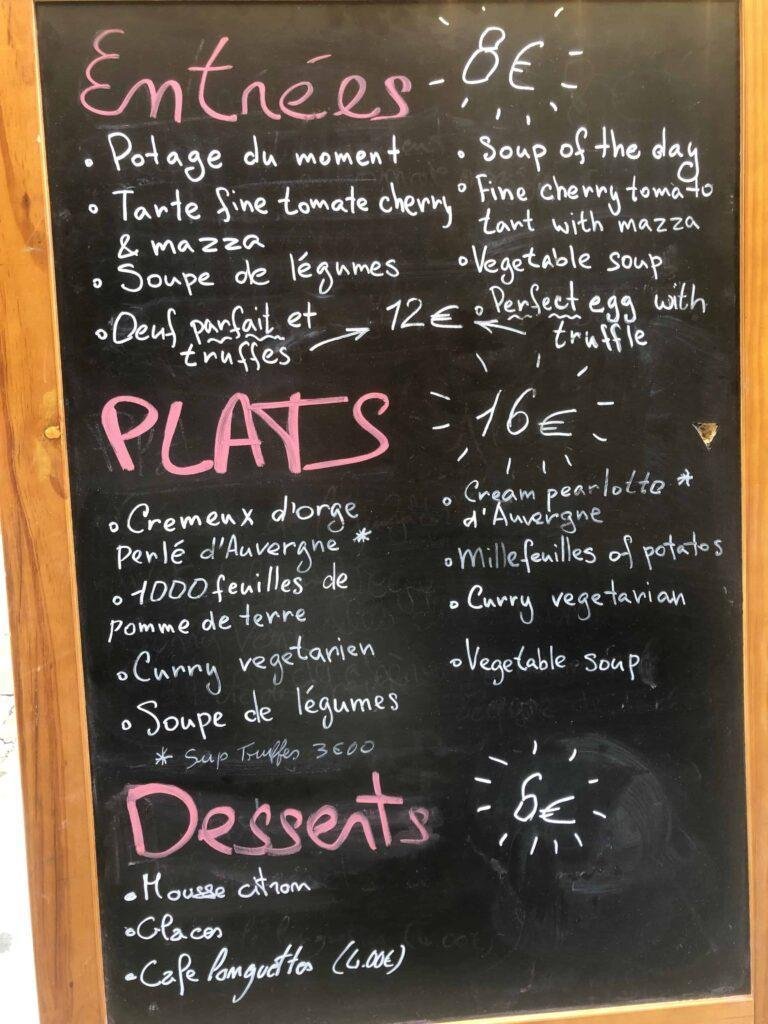 Entrées 8€
• Potage du moment
• Tarte fine tomate cherry
& mazza
• Soupe de légumes
• Oeuf parfait et
truffes
12€
• Soup of the day
• Fine cherry tomato
tart with mazza
• Vegetable soup
• Perfect egg with
truffle
PLATS 16€
• Cremeux d'orge
Perlé d'Auvergne *
• 1000 feuilles de
pomme de terre
• Curry vegetarien
• Soupe de légumes
* Sup Truffes 3€00
• Cream pearlotto *
d'Auvergne
• Millefeuilles of potatos
• Curry vegetarian
• Vegetable soup
Desserts 6€
• Mousse citron
• Glaces
• Cafe (4.00€)